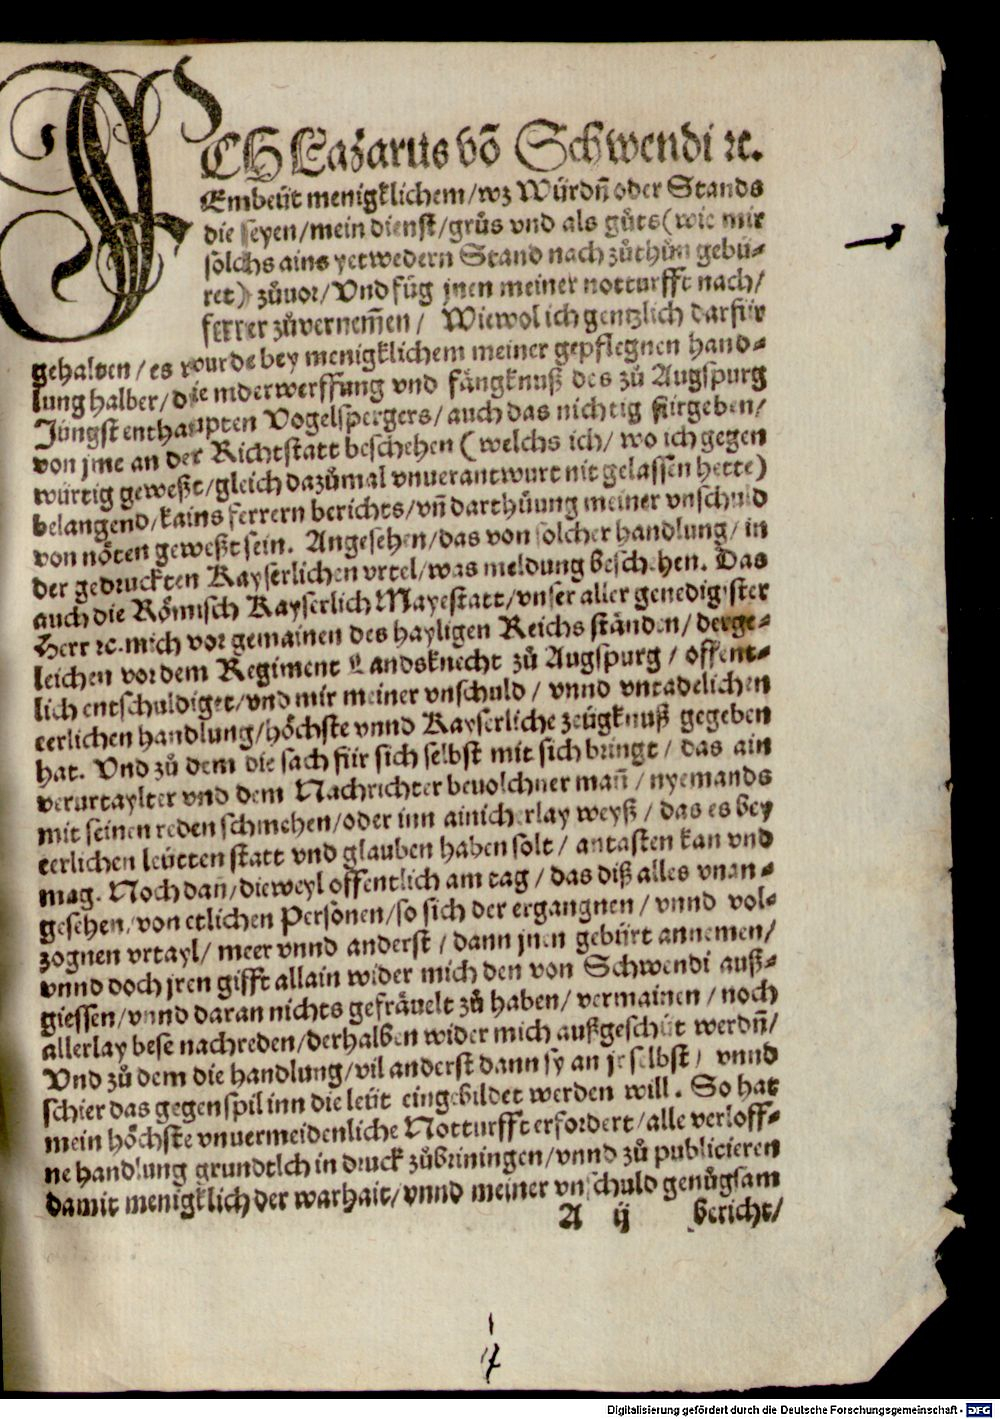 ICH Lazarus võ Schwendi ꝛc.
Embeüt menigklichem/wz Würdñ oder Stands
die seyen/mein dienst/grůs vnd als gůts (wie mir
solchs ains yetwedern Stand nach zůthůn gebü-
ret) zůuor/Vnd füg jnen meiner notturfft nach/
ferrer zůvernem̃en/ Wiewol ich gentzlich darfür
gehalten/es wurde bey menigklichem meiner gepflegnen hand-
lung halber/die niderwerffung vnd fängknuß des zů Augspurg
Jüngst enthaupten Vogelspergers/auch das nichtig fürgeben/
von jme an der Richtstatt beschehen (welchs ich/wo ich gegen
würtig geweßt/gleich dazůmal vnuerantwurt nit gelassen hette)
belangend/kains ferrern berichts/vñ darthůung meiner vnschuld
von nöten geweßt sein. Angesehen/das von solcher handlung/in
der gedruckten Kayserlichen vrtel/was meldung beschehen. Das
auch die Römisch Kayserlich Mayestatt/vnser aller genedigister
Herr ꝛc. mich vor gemainen des hayligen Reichs ständen/derge-
leichen vor dem Regiment Landsknecht zů Augspurg/offent-
lich entschuldiget/vnd mir meiner vnschuld/vnnd vntadelichen
eerlichen handlung/höchste vnnd Kayserliche zeügknuß gegeben
hat. Vnd zů dem die sach für sich selbst mit sich bringt/das ain
verurtaylter vnd dem Nachrichter beuolchner mañ/nyemands
mit seinen reden schmehen/oder inn ainicherlay weyß/das es bey
eerlichen leütten statt vnd glauben haben solt/antasten kan vnd
mag. Noch dañ/dieweyl offentlich am tag/das diß alles vnan-
gesehen/von etlichen Personen/so sich der ergangnen/vnnd vol-
zognen vrtayl/meer vnnd anderst/dann jnen gebürt annemen/
vnnd doch jren gifft allain wider mich den von Schwendi auß-
giessen/vnnd daran nichts gefräuelt zů haben/vermainen/noch
allerlay bese nachreden/derhalben wider mich außgeschüt werdñ/
Vnd zů dem die handlung/vil anderst dann sy an jr selbst/vnnd
schier das gegenspil inn die leüt eingebildet werden will. So hat
mein höchste vnuermeidenliche Notturfft erfordert/alle verloff-
ne handlung grundtlch in druck zůbriningen/vnnd zů publicieren
damit menigklich der warhait/vnnd meiner vnschuld genůgsam
A ij bericht/
Digitalisierung gefördert durch die Deutsche Forschungsgemeinschaft - DFG